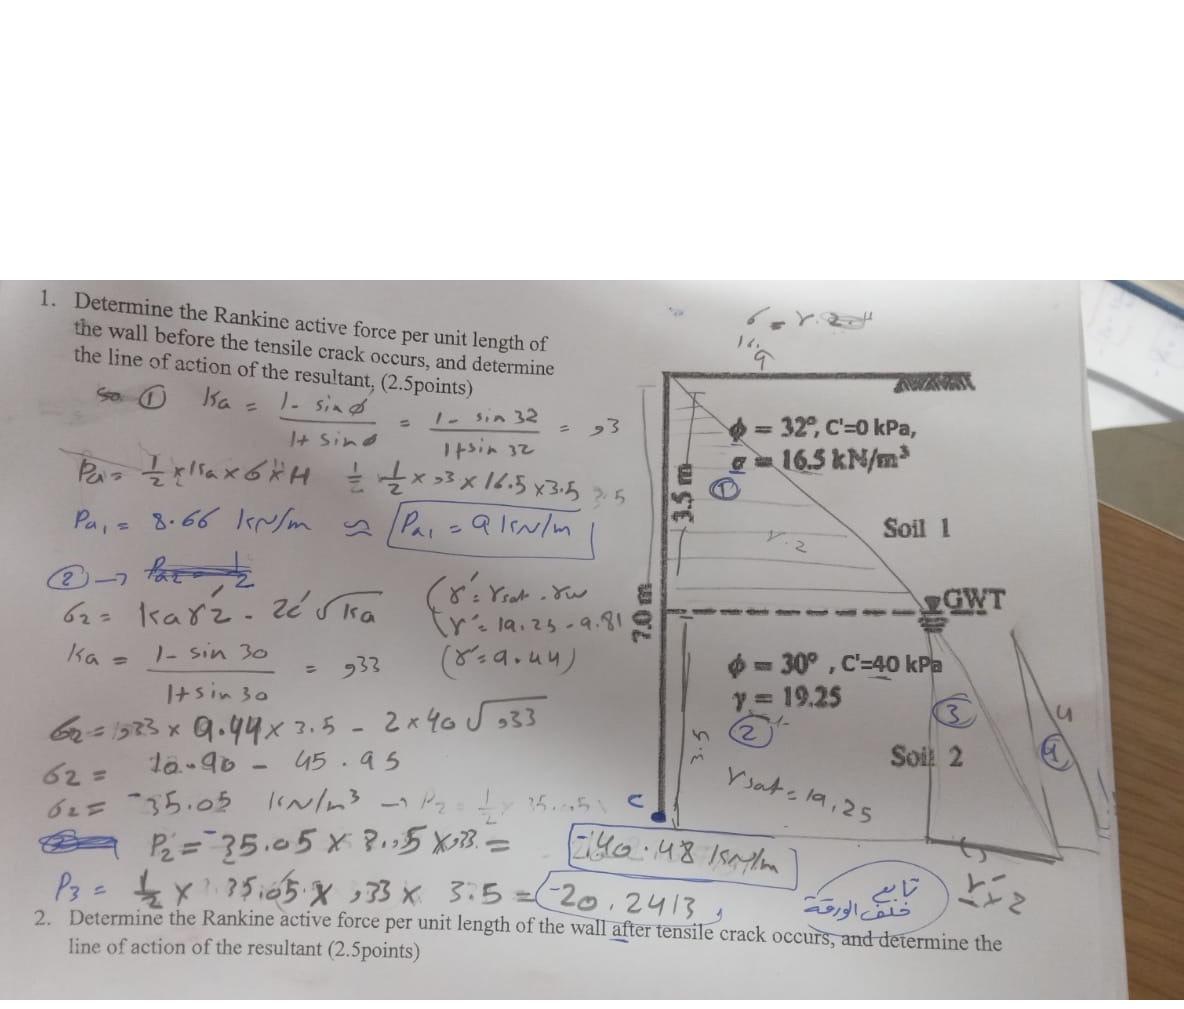 1. Determine the Rankine active force per unit length of
the wall before the tensile crack occurs, and determine
the line of action of the resultant, (2.5points)
① Ka = 1- sinϕ / 1+ sinϕ = 1- sin 32 / 1+sin 32 = ,3
Pa = 1/2 × Ka × 6 × H = 1/2 × ,3 × 16.5 × 3.5
Pa₁ = 8.66 kN/m ≈ Pa₁ = 9 kN/m
② →
σ2 = Ka γ' z - 2c' √Ka
(γ' = γsat - γw
(γ' = 19.25 - 9.81
(γ = 9.44)
Ka = 1- sin 30 / 1+sin 30 = ,33
σ2 = ,33 × 9.44 × 3.5 - 2 × 40 √,33
σ2 = 10.90 - 45.95
σ2 = -35.05 kN/m³
P2 = -35.05 × 3.5 × ,33 = -40.48 kN/m
P3 = 1/2 × 35.05 × ,33 × 3.5 = -20.2413
ϕ = 32⁰, C'=0 kPa,
σ = 16.5 kN/m³
①
3.5 m
Soil 1
γ.2
GWT
7.0 m
ϕ = 30⁰ , C'=40 kPa
γ = 19.25
②
③
u
④
3.5
Soil 2
γsat = 19,25
C
تابع
خلف الورقة
2. Determine the Rankine active force per unit length of the wall after tensile crack occurs, and determine the
line of action of the resultant (2.5points)